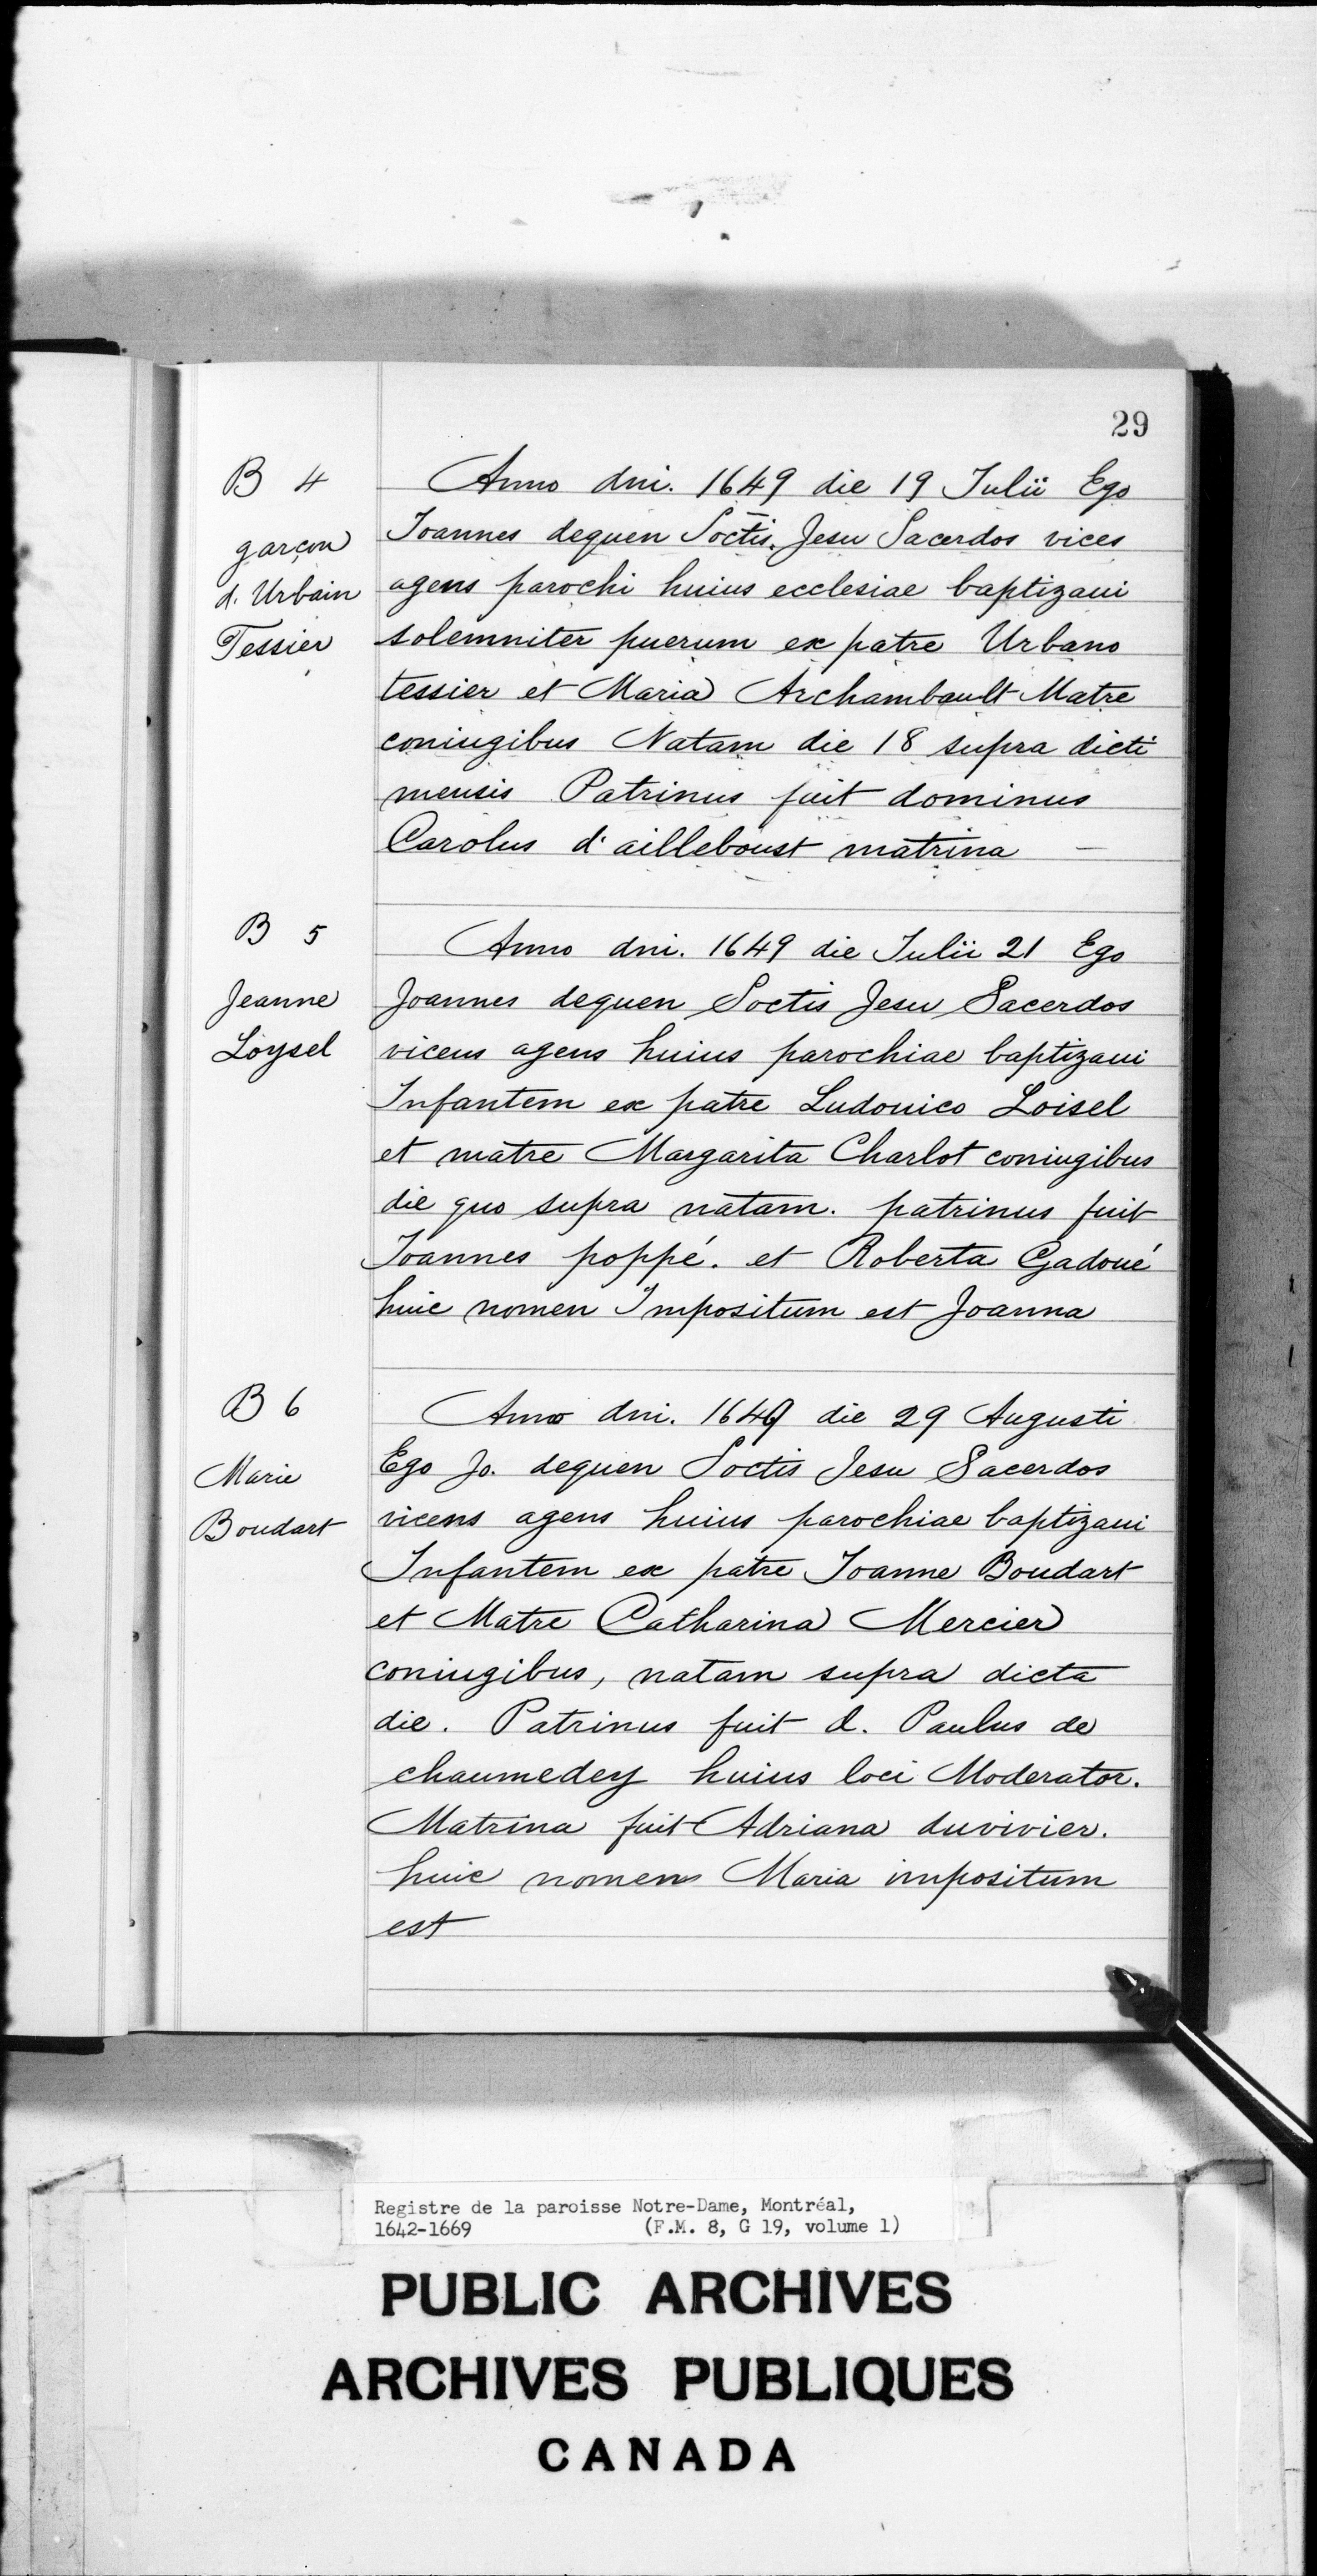 29
B 4
garçon
d. Urbain
Tessier
Anno dni. 1649 die 19 Julii Ego
Joannes dequen Soctis. Jesu Sacerdos vices
agens parochi huius ecclesiae baptizaui
solemniter puerum ex patre Urbano
tessier et Maria Archambault Matre
coniugibus Natam die 18 supra dicti
mensis Patrinus fuit dominus
Carolus d'ailleboust matrina —
B 5
Jeanne
Loysel
Anno dni. 1649 die Julii 21 Ego
Joannes dequen Soctis Jesu Sacerdos
vicens agens huius parochiae baptizaui
Infantem ex patre Ludouico Loisel
et matre Margarita Charlot coniugibus
die quo supra natam. patrinus fuit
Joannes poppé. et Roberta Gadoué
huic nomen Impositum est Joanna
B 6
Marie
Boudart
Anno dni. 1649 die 29 Augusti
Ego Jo. dequen Soctis Jesu Sacerdos
vicens agens huius parochiae baptizaui
Infantem ex patre Joanne Boudart
et Matre Catharina Mercier
coniugibus, natam supra dicta
die. Patrinus fuit d. Paulus de
chaumedey huius loci Moderator.
Matrina fuit Adriana duvivier.
huic nomen Maria impositum
est
Registre de la paroisse Notre-Dame, Montréal,
1642-1669 (F.M. 8, G 19, volume 1)
PUBLIC ARCHIVES
ARCHIVES PUBLIQUES
CANADA